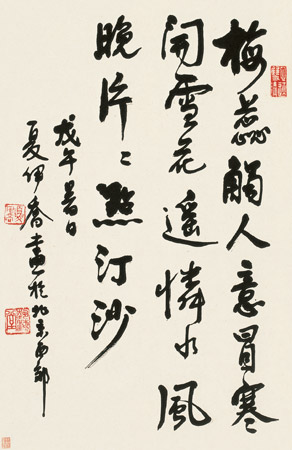 梅蕊觸人意冒寒
開雪花遥憐水風
晚片〻點汀沙
戊午暑日
夏伊喬書於北京西郊